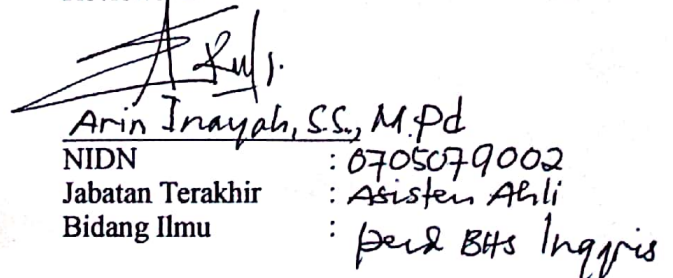 Arin Inayah, S.S., M.Pd
NIDN : 0705079002
Jabatan Terakhir : Asisten Ahli
Bidang Ilmu : Pend BHS Inggris